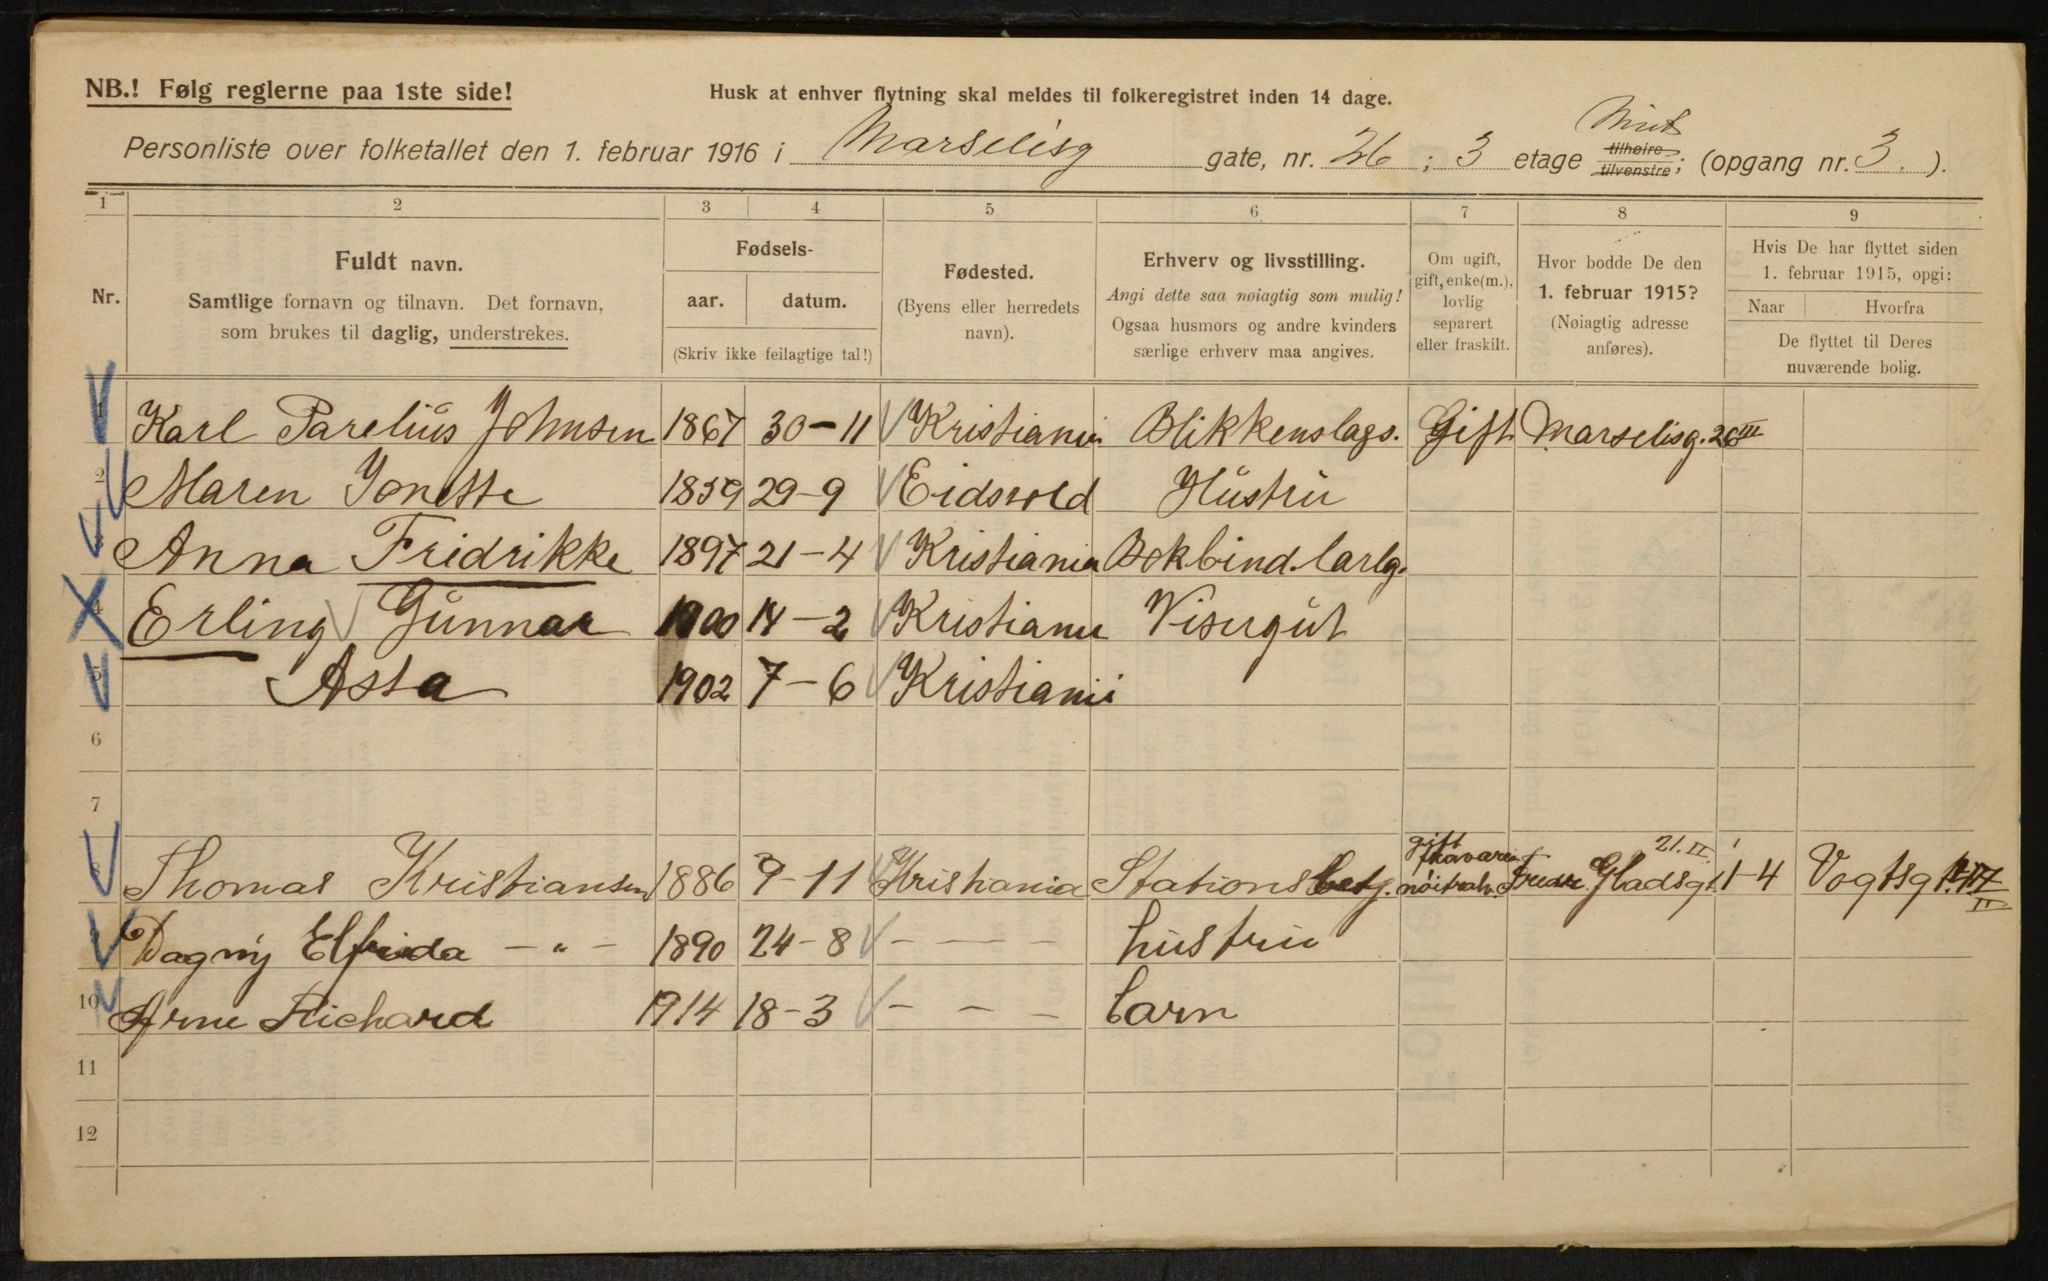 NB.! Følg reglerne paa 1ste side!
Husk at enhver flytning skal meldes til folkeregistret inden 14 dage.
Personliste over folketallet den 1. februar 1916 i Marselisg gate, nr. 26 ; 3 etage tilhøire tilvenstre; (opgang nr. 3. ).
1 2 3 4 5 6 7 8 9
Nr.
Fuldt navn.
Samtlige fornavn og tilnavn. Det fornavn,
som brukes til daglig, understrekes.
Fødsels-
aar. datum.
(Skriv ikke feilagtige tal!)
Fødested.
(Byens eller herredets
navn).
Erhverv og livsstilling.
Angi dette saa nøiagtig som mulig!
Ogsaa husmors og andre kvinders
særlige erhverv maa angives.
Om ugift,
gift, enke(m.),
lovlig
separert
eller fraskilt.
Hvor bodde De den
1. februar 1915?
(Nøiagtig adresse
anføres).
Hvis De har flyttet siden
1. februar 1915, opgi:
Naar Hvorfra
De flyttet til Deres
nuværende bolig.
1 Karl Parelius Johnsen 1867 30-11 Kristiania Blikkenslags. Gift Marselisg. 26 III
2 Maren Jonette 1859 29-9 Eidsvold Hustru
3 Anna Fridrikke 1897 21-4 Kristiania Bokbind.
4 Erling Gunnar 1900 14-2 Kristiania Visergut
5 Asta 1902 7-6 Kristiania
6
7
8 Thomas Kristiansen 1886 9-11 Kristiania Stationsbetj. gift Fredr. Gladsgt. 21. II. 1-4 Vogtsg 17 II
9 Dagny Elfrida - " - 1890 24-8 - - - hustru
10 Arne Richard 1914 18-3 - - - barn
11
12